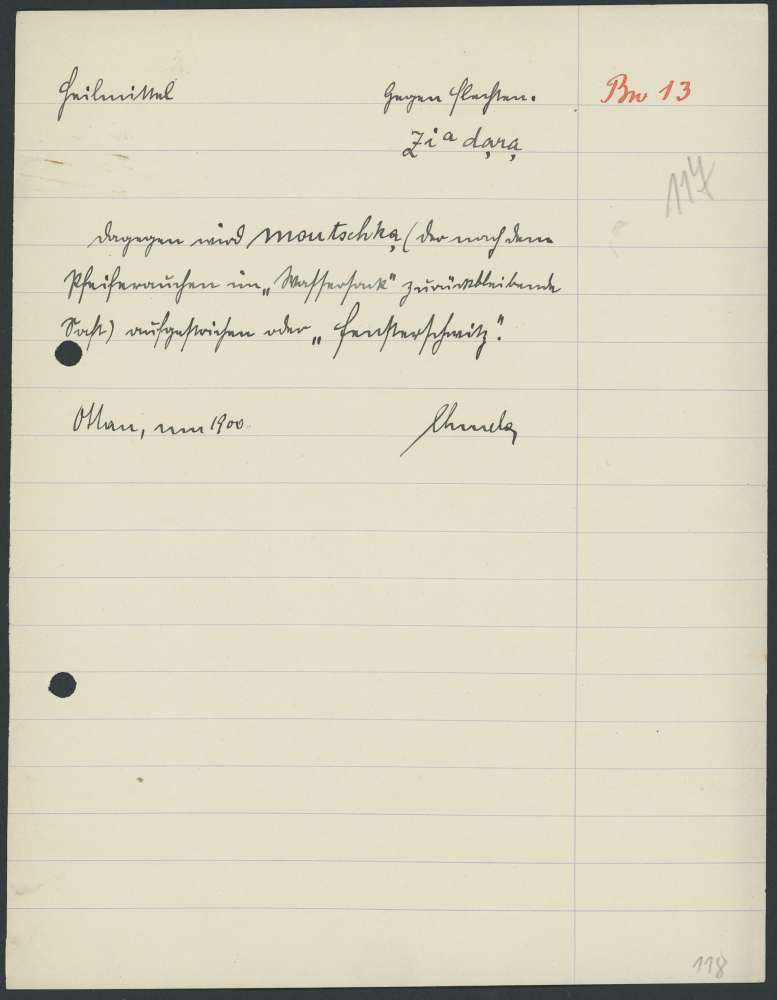 Heilmittel
Gegen Flechten.
Bw 13
Ziᵃ dąrą
117
dagegen wird moutschką (der nach dem
Pfeiferauchen im „Wassersack" zurückbleibende
Saft) aufgestrichen oder „Fensterschwitz".
Ottau, um 1900.
118